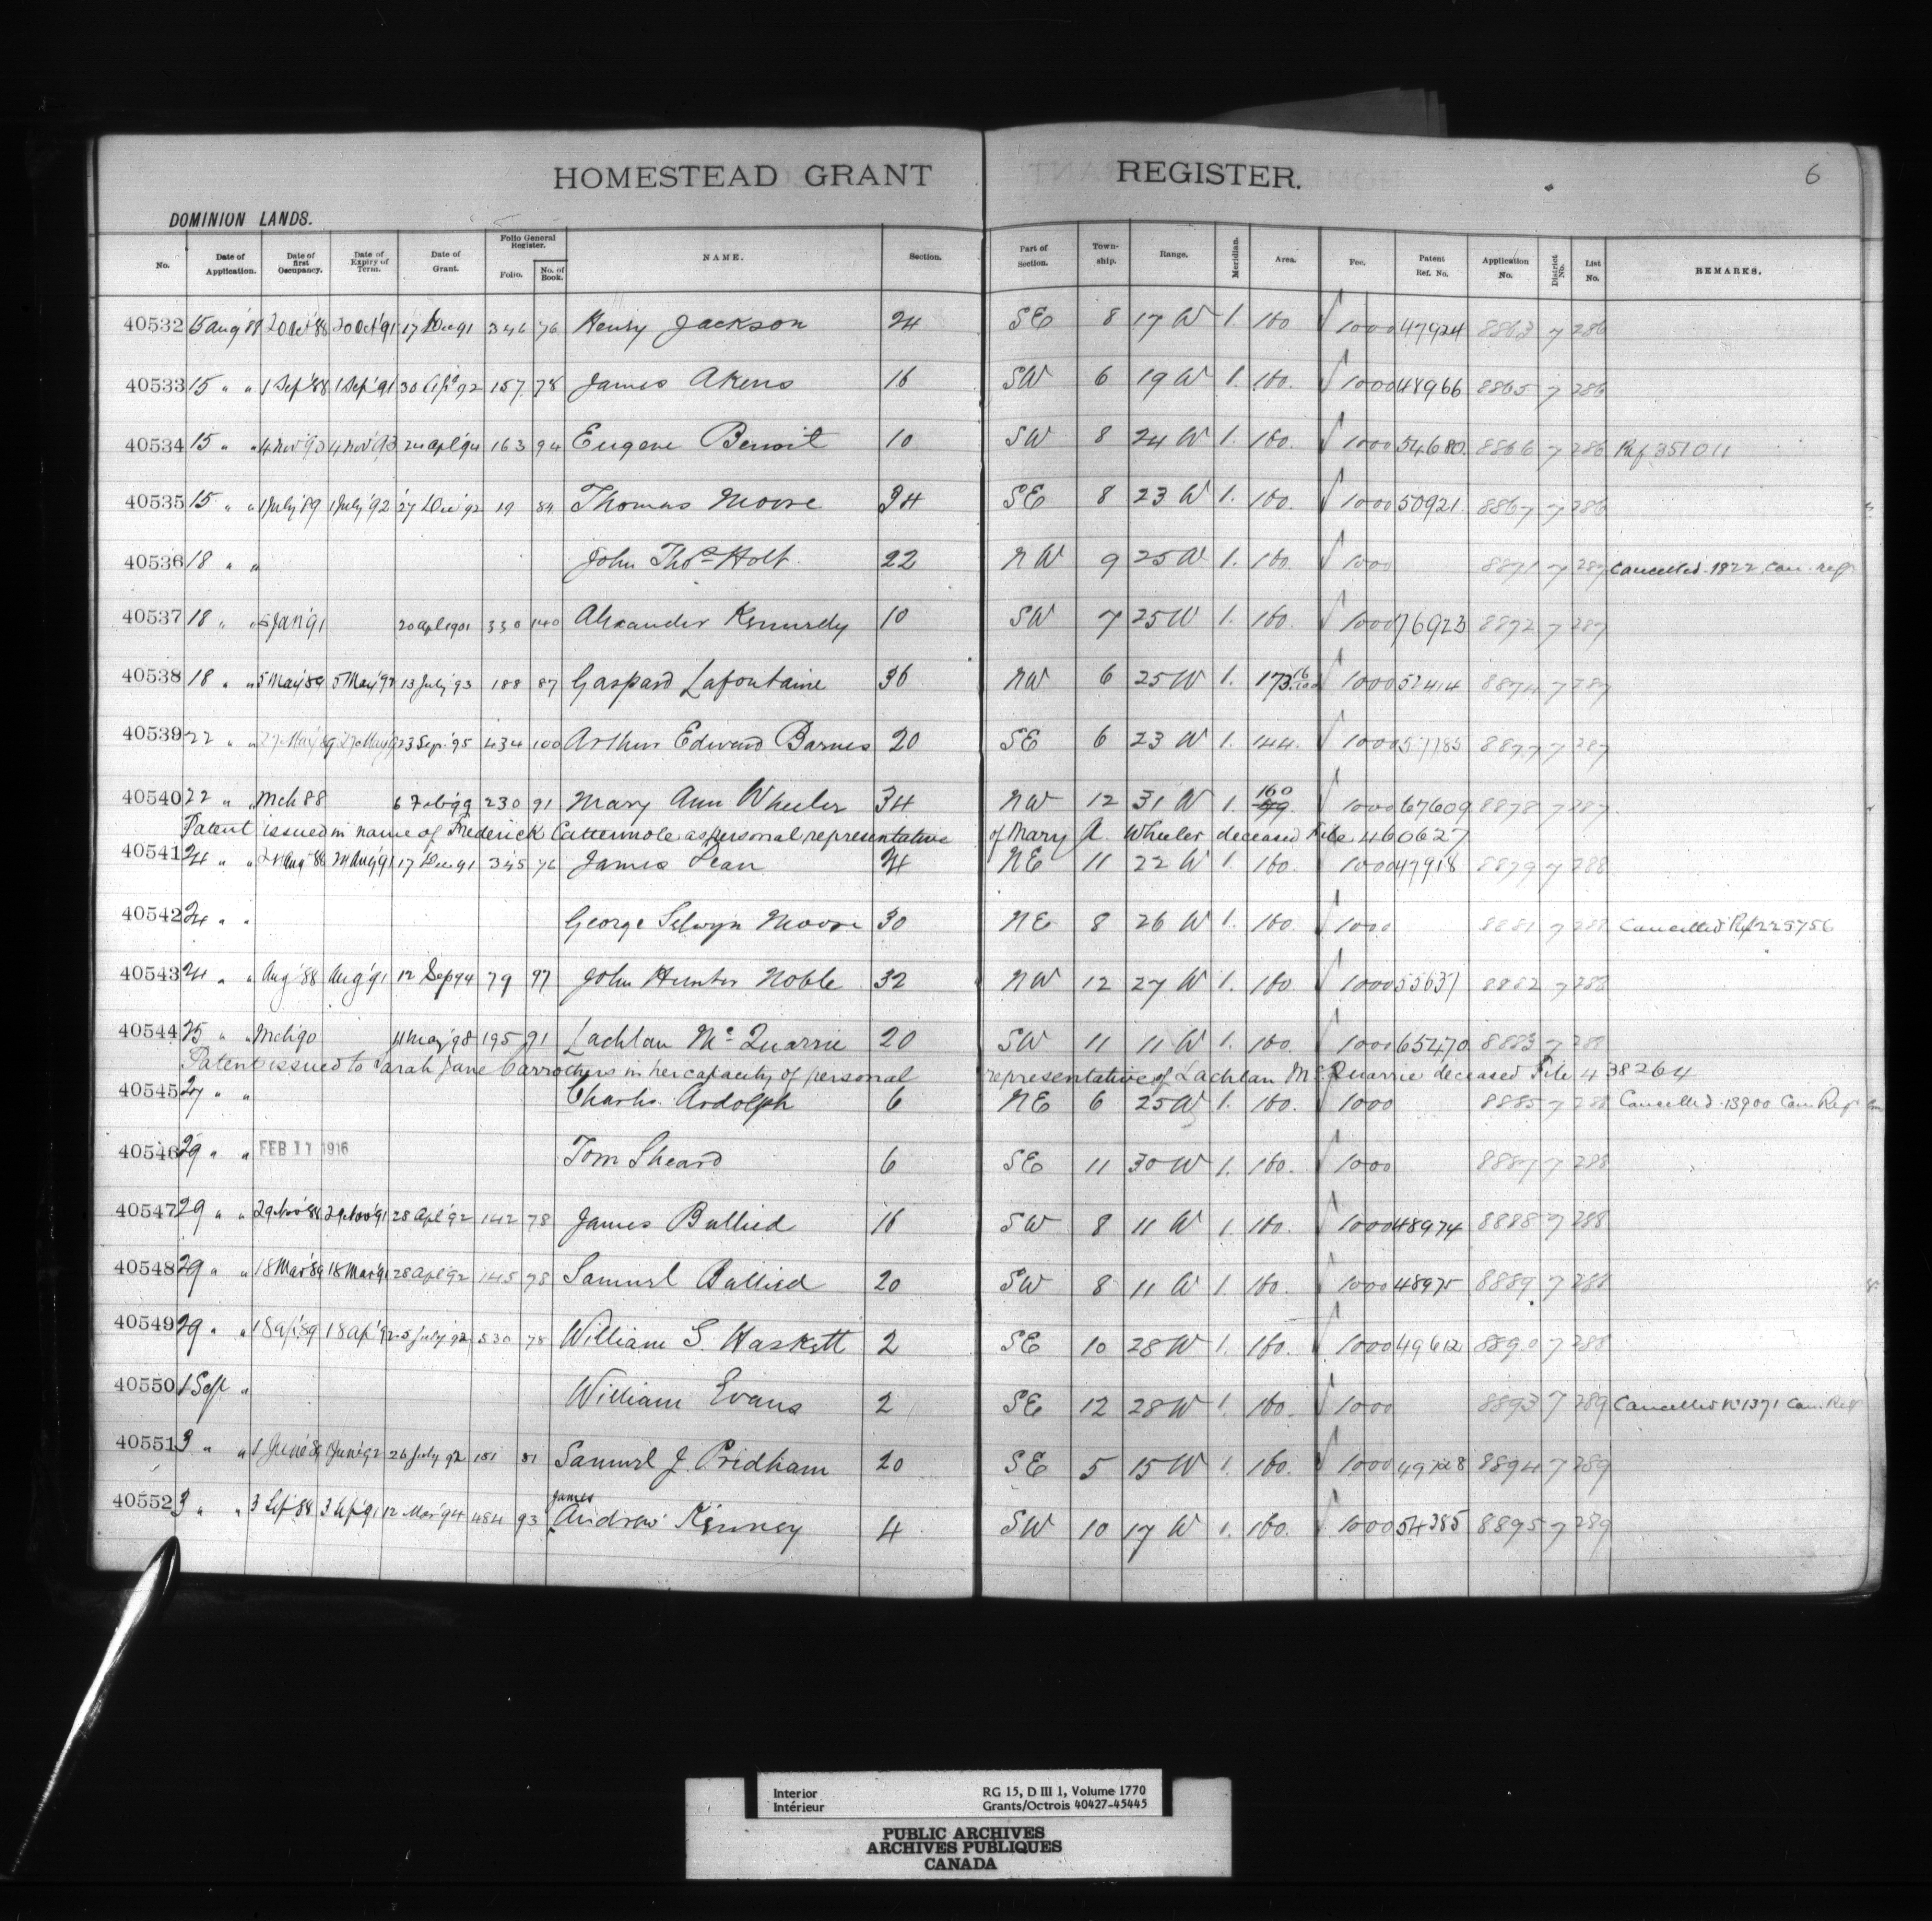 HOMESTEAD GRANT REGISTER.
6
DOMINION LANDS.
No. Date of Application. Date of first Occupancy. Date of Expiry of Term. Date of Grant. Folio General Register. Folio. No. of Book. NAME. Section. Part of Section. Town-ship. Range. Meridian. Area. Fee. Patent Ref. No. Application No. District No. List No. REMARKS.
40532 15 Aug '88 20 Oct '88 20 Oct '91 17 Dec 91 346 76 Henry Jackson 24 SE 8 17 W 1. 160 1000 47924 8863 7 286
40533 15 " " 1 Sep '88 1 Sep '91 30 Apl 92 157 78 James Akens 16 SW 6 19 W 1. 160. 1000 48966 8865 7 286
40534 15 " " 4 Nov '90 4 Nov '93 24 Apl '94 163 94 Eugene Benoit 10 SW 8 24 W 1. 160. 1000 54680 8866 7 286 Ref 351011
40535 15 " " 1 July '89 1 July '92 27 Dec '92 19 84 Thomas Moore 34 SE 8 23 W 1. 160. 1000 50921. 8867 7 286
40536 18 " " John Thos Holt. 22 NW 9 25 W 1. 160. 1000 8871 7 287 Cancelled 1822 Can. regr
40537 18 " " 5 Jan 91 20 Apl 1901 330 140 Alexander Kennedy 10 SW 7 25 W 1. 160. 1000 76923 8872 7 287
40538 18 " " 5 May '89 5 May '92 13 July '93 188 87 Gaspard Lafontaine 36 NW 6 25 W 1. 173 16/100 1000 52414 8874 7 287
40539 22 " " 27 May '89 27 May 23 Sep. '95 434 100 Arthur Edward Barnes 20 SE 6 23 W 1. 144. 1000 57785 8877 7 287
40540 22 " " Mch 88 6 Feb 99 230 91 Mary Ann Wheeler 34 NW 12 31 W 1. 160 1000 67609 8878 7 287
Patent issued in name of Frederick Cattermole as personal representative of Mary A. Wheeler deceased File 460627
40541 24 " " 24 Aug '88 24 Aug '91 17 Dec 91 345 76 James Dean 24 NE 11 22 W 1. 160. 1000 47918 8879 7 288
40542 24 " " George Selwyn Moore 30 NE 8 26 W 1. 160. 1000 8881 7 288 Cancelled Ref 225756
40543 24 " " Aug '88 Aug '91 12 Sep 94 79 97 John Hunter Noble 32 NW 12 27 W 1. 160. 1000 55637 8882 7 288
40544 25 " " Mch 90 11 May '98 195 91 Lachlan McQuarrie 20 SW 11 11 W 1. 160. 1000 65470 8883 7 288
Patent issued to Sarah Jane Carrothers in her capacity of personal representative of Lachlan McQuarrie deceased File 438264
40545 27 " " Charles Ardolph 6 NE 6 25 W 1. 160. 1000 8885 7 288 Cancelled 13900 Can. Regr
40546 29 " " FEB 11 1916 Tom Sheard 6 SE 11 30 W 1. 160. 1000 8887 7 288
40547 29 " " 29 Nov '88 29 Nov '91 28 Apl '92 142 78 James Ballied 16 SW 8 11 W 1. 160. 1000 48974 8888 7 288
40548 29 " " 18 Mar '89 18 Mar '91 28 Apl '92 145 78 Samuel Ballied 20 SW 8 11 W 1. 160. 1000 48975 8889 7 288
40549 29 " " 18 Ap '89 18 Ap '92 5 July '92 530 78 William G. Haskett 2 SE 10 28 W 1. 160. 1000 49612 8890 7 288
40550 1 Sept " William Evans 2 SE 12 28 W 1. 160. 1000 8893 7 289 Cancelled No 1371 Can. Regr
40551 3 " " 1 June '89 1 June '92 26 July 92 181 81 Samuel J. Pridham 20 SE 5 15 W 1. 160. 1000 8894 7 289
40552 3 " " 3 Sep '88 3 Sep '91 12 Mar '94 484 93 James Andrew Kenney 4 SW 10 17 W 1. 160. 1000 54385 8895 7 289
Interior
Intérieur
RG 15, D III 1, Volume 1770
Grants/Octrois 40427-45445
PUBLIC ARCHIVES
ARCHIVES PUBLIQUES
CANADA